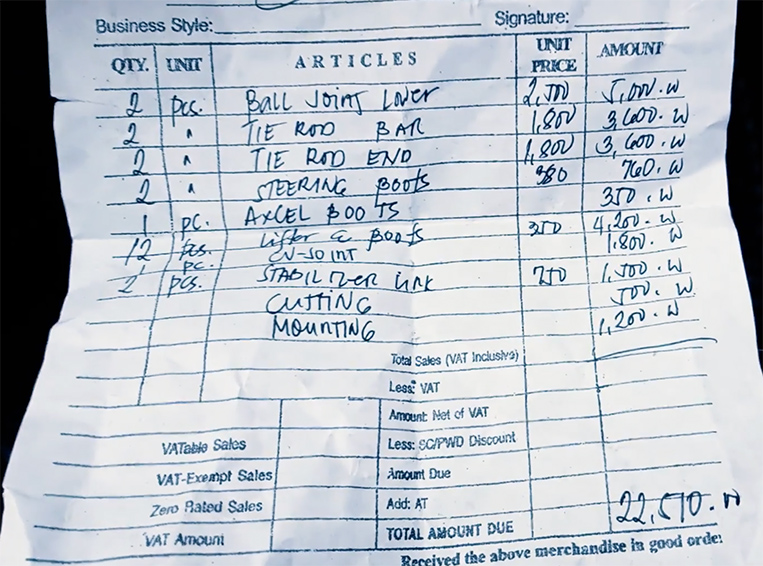 Business Style: Signature:
QTY. UNIT ARTICLES UNIT PRICE AMOUNT
2 pcs. Ball Joint Lower 2,500 5,000.00
2 " TIE ROD BAR 1,800 3,600.00
2 " TIE ROD END 1,800 3,600.00
2 " STEERING BOOTS 380 760.00
1 pc. AXCEL BOOTS 350.00
12 pcs. Lifter & Boots 350 4,200.00
1 pc. CV-JOINT 1,800.00
2 pcs. STABILIZER LINK 750 1,500.00
CUTTING 500.00
MOUNTING 1,200.00
Total Sales (VAT Inclusive)
Less: VAT
Amount: Net of VAT
VATable Sales Less: SC/PWD Discount
VAT-Exempt Sales Amount Due
Zero Rated Sales Add: AT
VAT Amount TOTAL AMOUNT DUE 22,510.00
Received the above merchandise in good order